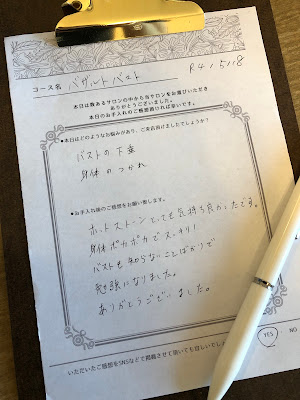 コース名 バザルトバスト
R4/5/18
本日は数あるサロンの中から当サロンをお選びいただき
ありがとうございました。
本日のお手入れのご感想お聞かせ頂ければ幸いです。
●本日はどのようなお悩みがあり、ご来店頂けましたでしょうか?
バストの下垂
身体のつかれ
●お手入れ後のご感想をお願い致します。
ホットストーンとっても気持ち良かったです。
身体ポカポカでスッキリ!
バストも知らないことばかりで
勉強になりました。
ありがとうございました。
YES
NO
いただいたご感想をSNSなどで掲載させて頂いても宜しいでし